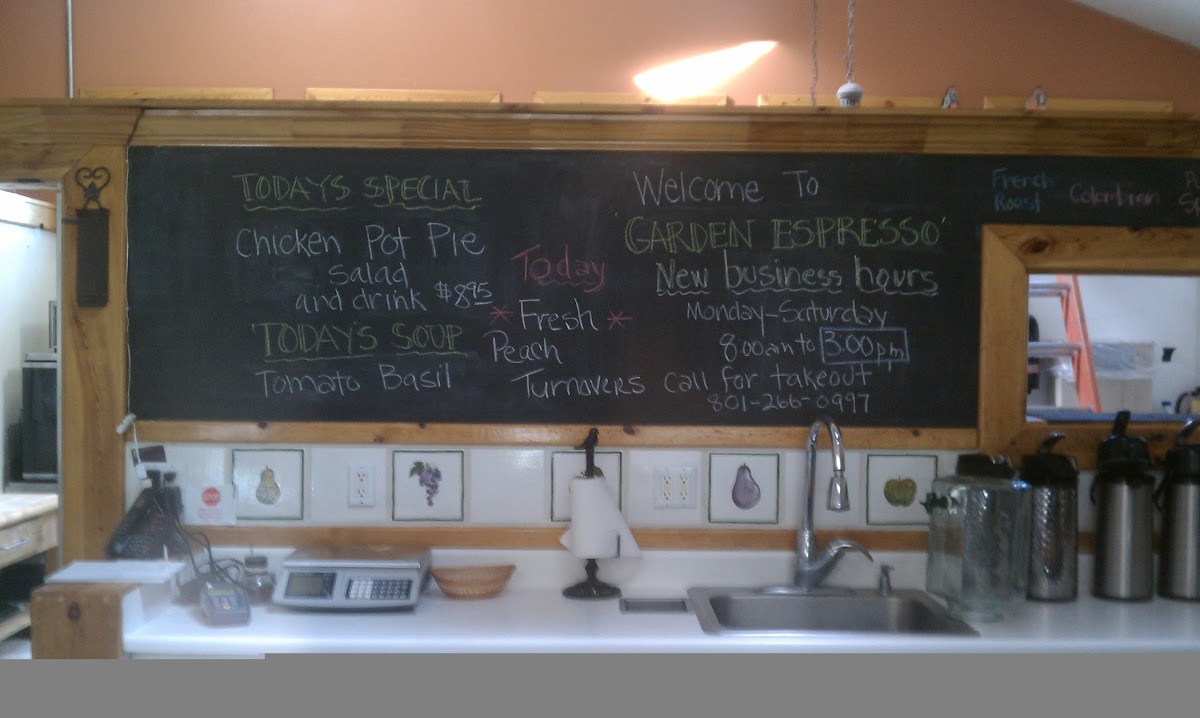 TODAY'S SPECIAL
Chicken Pot Pie
Salad
and drink $8.95
TODAY'S SOUP
Tomato Basil
Today
* Fresh *
Peach
Turnovers
Welcome To
'GARDEN ESPRESSO'
New business hours
Monday-Saturday
8:00am to 3:00pm
call for takeout
801-266-0997
French
Roast
Colombian
STOP